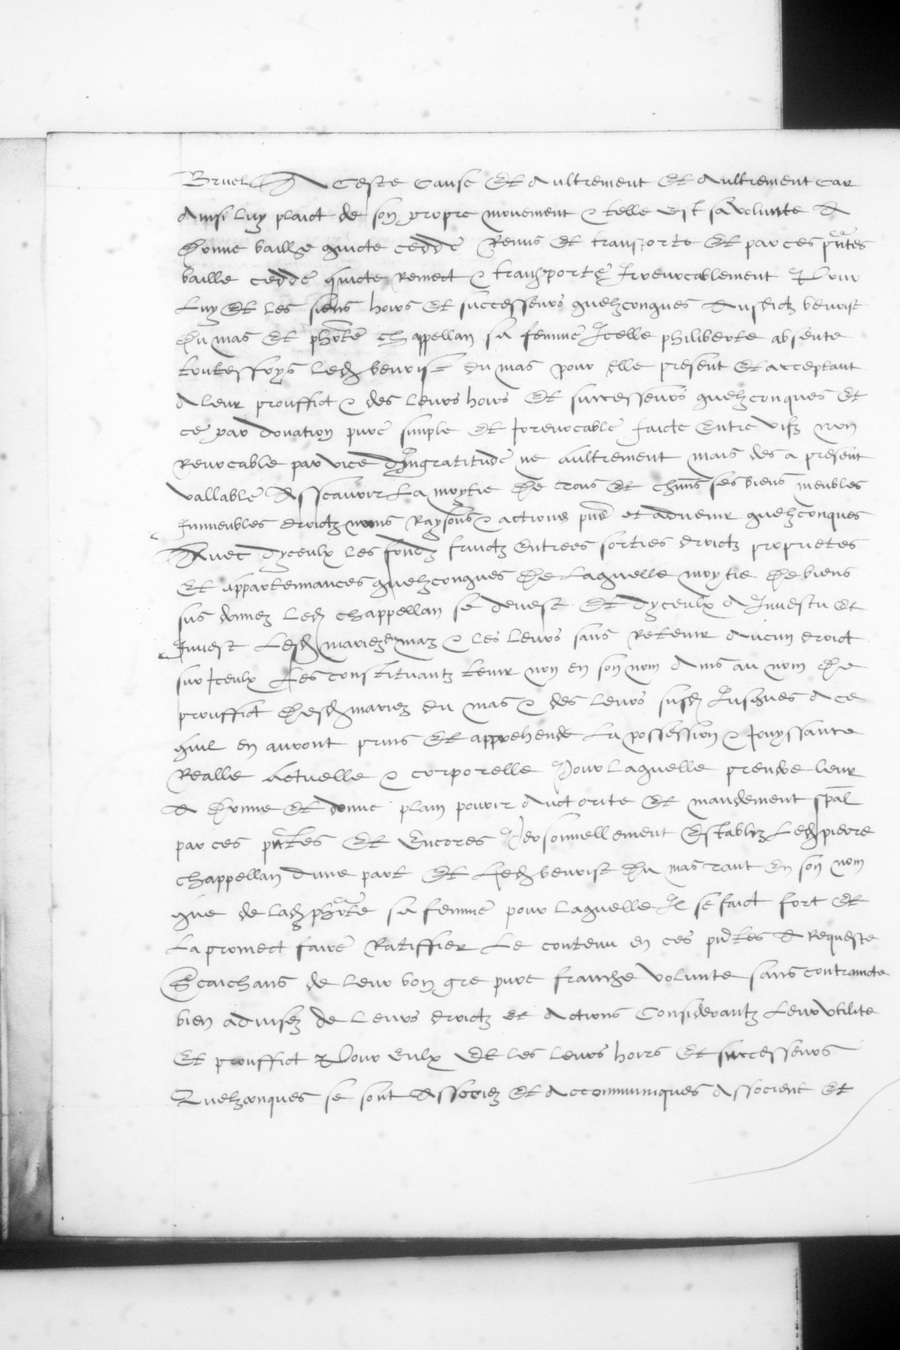 Bruel A ceste cause et aultrement et aultrement car
Ainsi luy plaict de son propre mouvement & telle est sa volunte A
donne baille quicte cedde Remis et transporte et par ces pntes
baille cedde quicte Remect & transporte Irrevocablement Pour
Luy et les siens hoirs et successeurs quelzconques Ausdictz benoist
du mas et phbrte chappellan sa femme Icelle philiberte absente
touteffoys Led benoist du mas pour elle present et acceptant
A leur prouffict & des leurs hoirs et successeurs quelzconques et
ce par donation pure simple et Irrevocable faicte entre vifz non
Revocable par vice d'Ingratitude ne aultrement mais des a present
vallable Asscavoir La moytie de trois et chuns ses biens meubles
Immeubles droictz noms Raysons & actions pns et advenir quelzconques
Avec dyceulx les fondz fruictz entrees sorties droictz proprietes
et appartenances quelzconques de Laquelle moytie de biens
sus donnez Led chappellan se devest et dyceulx A Investu et
Invest Lesd mariez du maz & les leurs sans Retenir Aucun droict
sur Iceulx Les constituantz tenir non en son nom Ains au nom &
prouffict desd mariez du mas & des leurs susd Jusques A ce
quil en auront prins et apprehende La possession & Jouyssance
Realle Actuelle & corporelle Pour Laquelle prendre leur
A donne et donne plain pouvoir Auctorite et mandement spal
par ces pntes et Encores Personnellement Establiz Led pierre
chappellan dune part et Led benoist du mas tant en son nom
que de lad phbrte sa femme pour Laquelle Il se faict fort et
La promect faire Ratiffier Le contenu en ces pntes A Requeste
Scaichans de leur bon gre pure franche volunte sans contraincte
bien advisez de Leurs droictz et Actions Considerantz Leur utilite
Et prouffict Pour eulx et les leurs hoirs et successeurs
Quelzconques se sont Associez et Accommuniques Associent et